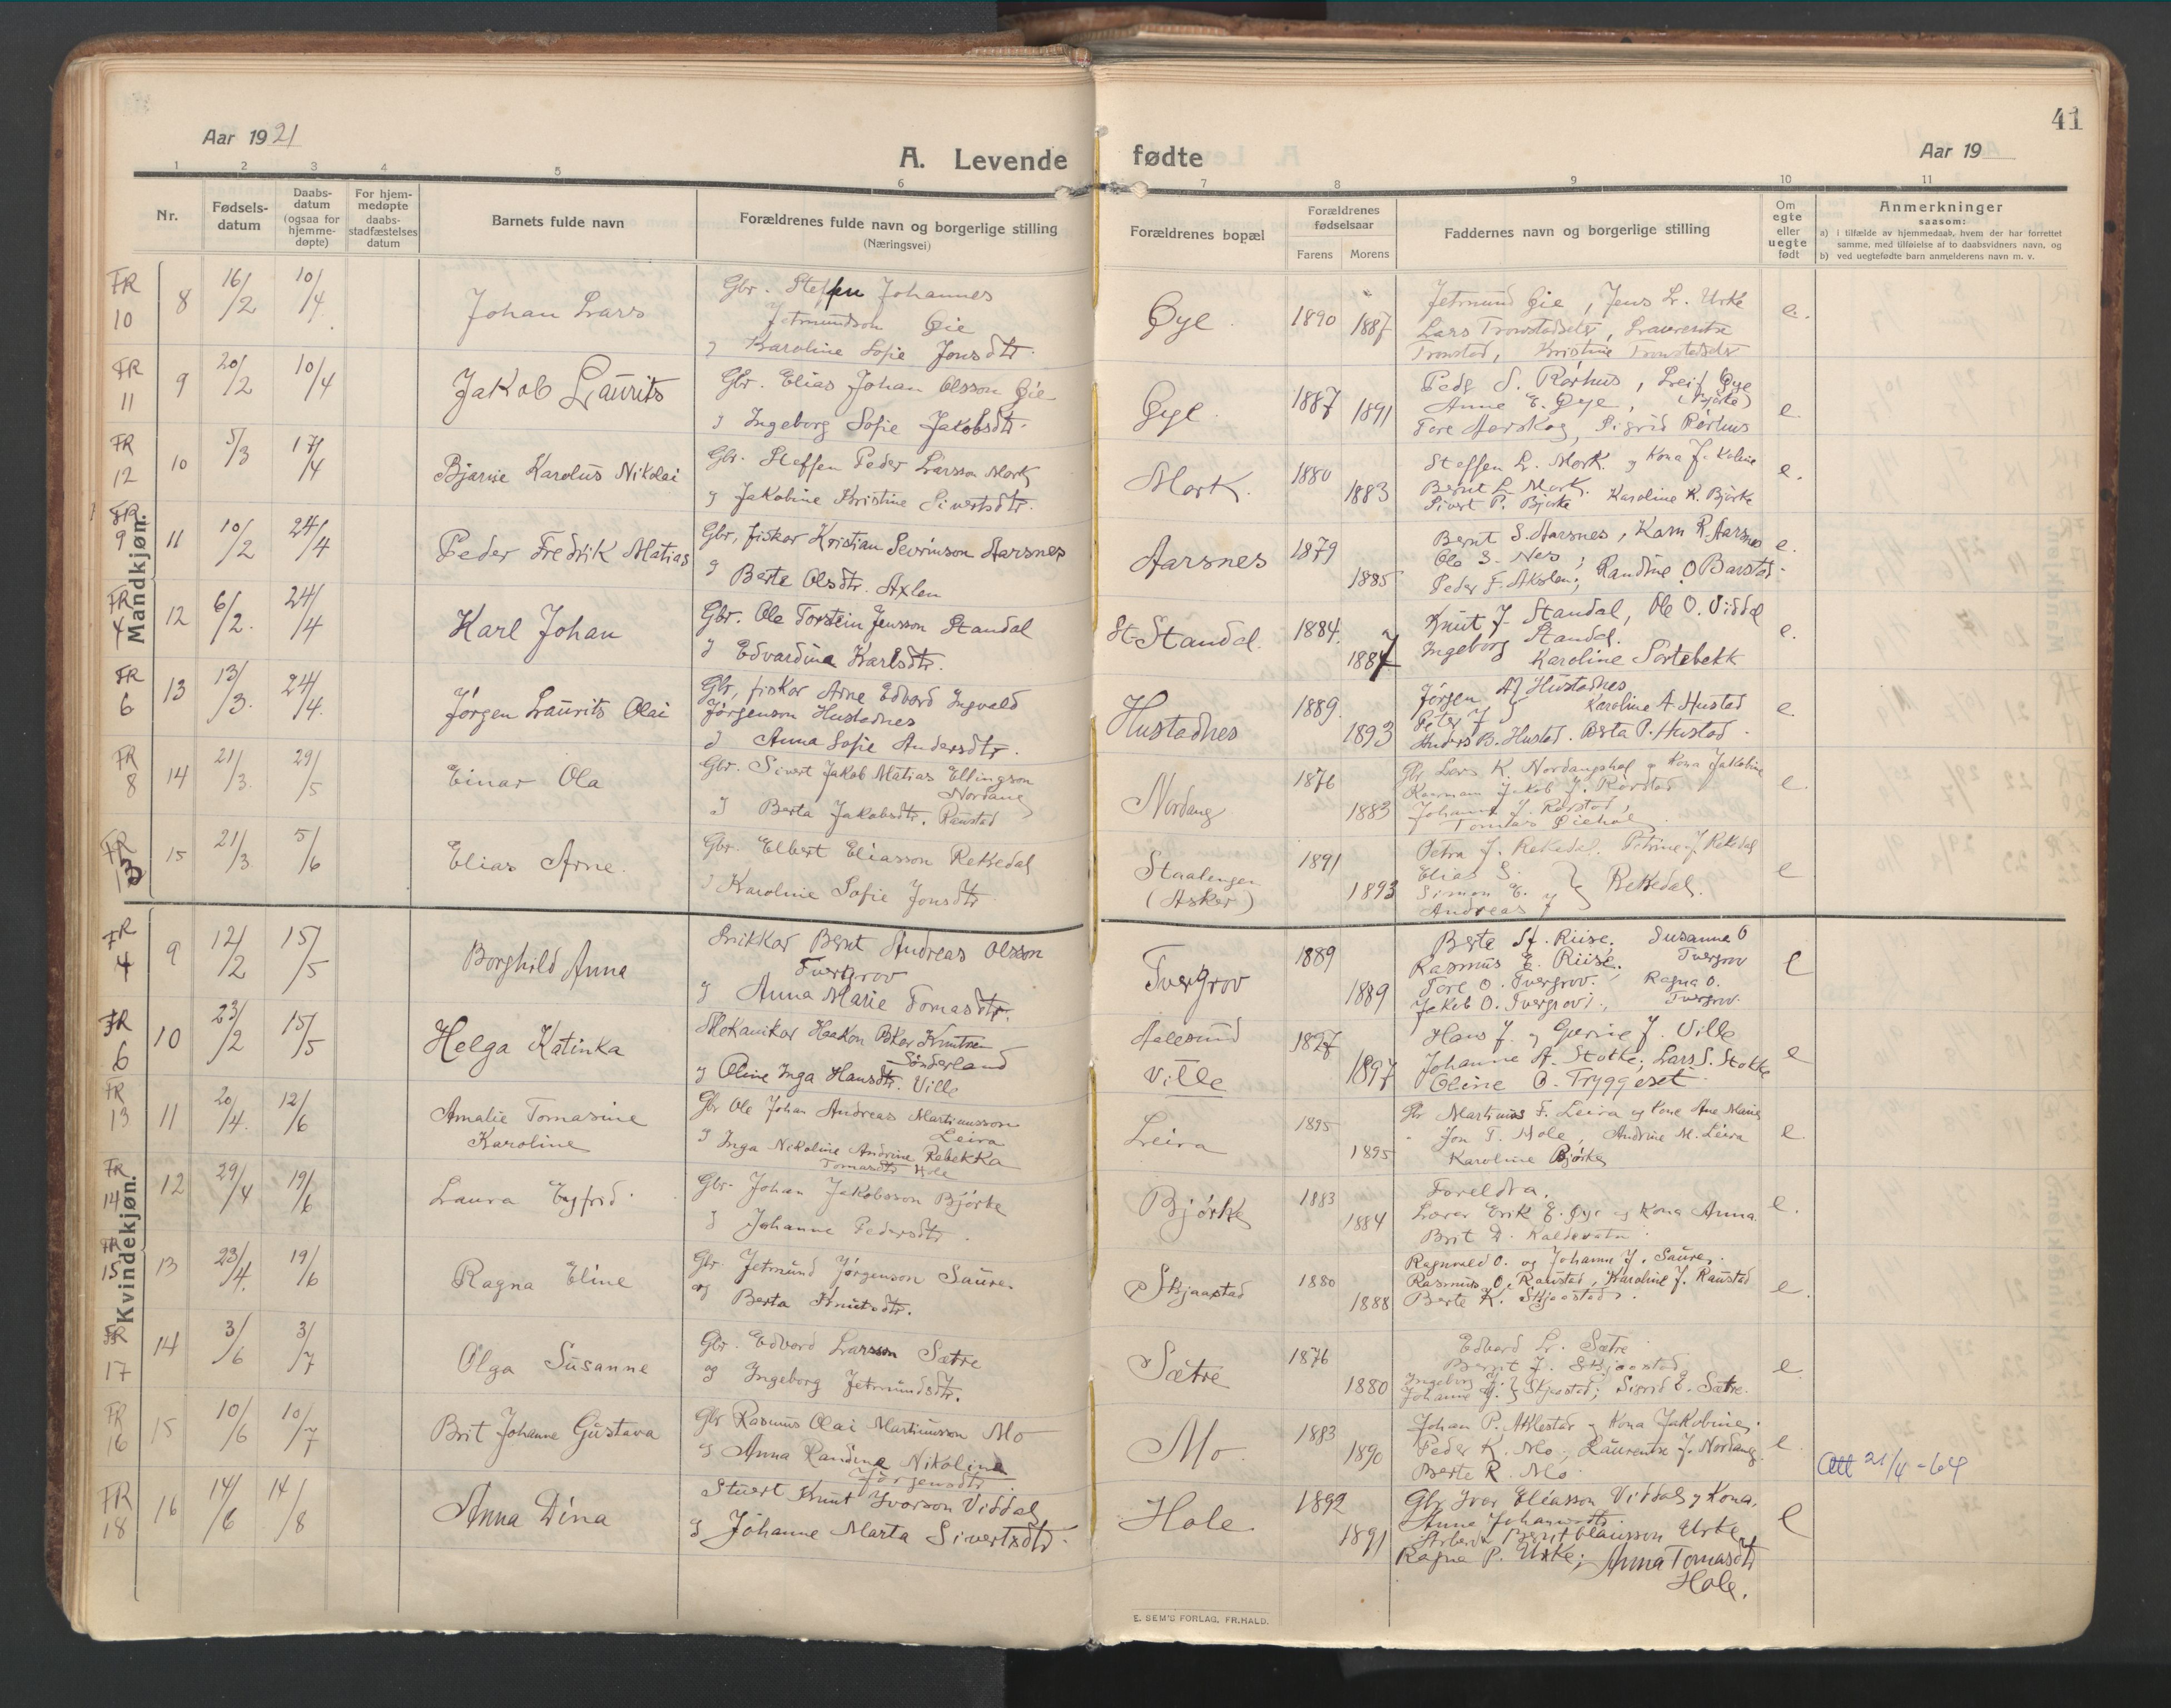 41
Aar 1921
A. Levende fødte
Aar 19
1 2 3 4 5 6 7 8 9 10 11
Nr.
Fødsels-datum
Daabs-datum (ogsaa for hjemme-døpte)
For hjem-medøpte daabs-stadfæstelses datum
Barnets fulde navn
Forældrenes fulde navn og borgerlige stilling
(Næringsvei)
Forældrenes bopæl
Forældrenes fødselsaar
Farens Morens
Faddernes navn og borgerlige stilling
Om egte eller uegte født
Anmerkninger
saasom:
a) i tilfælde av hjemmedaab, hvem der har forrettet samme, med tilføielse af to daabsvidners navn, og
b) ved uegtefødte barn anmelderens navn m. v.
Mandkjøn.
FR 10 8 16/2 10/4 Johan Lars
Gbr. Steffen Johannes
Jetmundson Øie
g Karoline Sofie Jonsdtr.
Øye. 1890 1887
Jetmund Øie, Jens L. Urke
Lars Tronstadseter, Laurentse
Tronstad, Kristine Tronstadseter
e.
FR 11 9 20/2 10/4 Jakob Laurits
Gbr. Elias Johan Olsson Øie
g Ingeborg Sofie Jakobsdtr.
Øye. 1887 1891
Peder S. Rørhus, Leif Øye
Anne E. Øye, (Bjørke)
Tore Aarskog, Sigrid Rørhus
e.
FR 12 10 5/3 17/4 Bjarne Karolus Nikolai
Gbr. Steffen Peder Larsson Mork
g Jakobine Kristine Sivertsdtr.
Mork. 1880 1883
Steffen L. Mork. g Kona J. Koline
Bernt L. Mork.
Sivert P. Bjørke Karoline K. Bjørke
e.
FR 9 11 10/2 24/4 Peder Fredrik Matias
Gbr, fiskar Kristian Sevrinson Aarsnes
g Berte Olsdtr. Axlen
Aarsnes 1879 1885
Bernt S. Aarsnes, Karn R. Aarsnes
Ole S. Nes,
Peder F. Akslen; Randine O Barstad.
e.
FR 4 12 6/2. 24/4 Karl Johan
Gbr. Ole Torstein Jensson Standal
g Edvardina Karlsdtr.
St-Standal. 1884. 1887
Knut J. Standal, Ole O. Viddal
Ingeborg Standal.
Karoline Sætebekk
e.
FR 6 13 13/3. 24/4. Jørgen Laurits Olai
Gbr, fiskar Arne Edvard Ingvald
Jørgenson Hustadnes
g Anna Sofie Andersdtr.
Hustadnes 1889. 1893
Jørgen A} Hustadnes
Peter J} Karoline A. Hustad
Anders B. Hustad. Berta P. Hustad.
e
FR 8 14 21/3. 29/5 Einar Ola
Gbr. Sivert Jakob Matias Ellingson
Nordang
g Berta Jakobsdtr. Raustad
Nordang 1876 1883
Gbr Lars K. Nordangshol g Kona Jakobine
Jakob J. Rørstad
Johanne J. Rørstad,
Tomas Øiehol
e.
FR 15 21/3. 5/6 Elias Arne.
Gbr. Elbert Eliasson Rekkedal
g Karoline Sofie Jonsdtr.
Staalengen
(Asker)
1891 1893
Petra J. Rekkedal. Petrine J Rekkedal
Elias S.
Simon E. } Rekkedal.
Andreas J
e
Kvindekjøn.
FR 4 9 12/2 15/5 Borghild Anna
Snikkar Bernt Andreas Olsson
Tvergrov
g Anna Marie Tomasdtr.
Tvergrov 1889 1889
Berte St. Riise; Susanna O
Rasmus E. Riise. Tvergrov
Tore O. Tvergrov. Ragna O.
Jakob O. Tvergrov; Tvergrov.
e
FR 6 10 23/2 15/5 Helga Katinka
Mekanikar Haakon Oskar Knutsen
Sønderland
g Oline Inga Hansdtr. Ville
Aalesund
Ville
1827 1897
Hans J. g Gurine J. Ville
Johanne A. Stokke; Lars S. Stokke
Oline O. Tryggeset
e
FR 13 11 20/4. 12/6 Amalie Tomasine
Karoline
Gbr Ole Johan Andreas Martinusson
Leira
g Inga Nikoline Andrine Rebekka
Tomasdtr Hole
Leira 1895 1895
Gbr Martinus F. Leira og Kone Ane Marie
Jon T. Hole, Andrine M. Leira
Karoline Bjørke
e
FR 14 12 29/4 19/6 Laura Eyfrid.
Gbr. Johan Jakobsson Bjørke
g Johanne Pedersdtr.
Bjørke 1883 1884
Foreldra.
Lærer Erik E. Øye og Kona Anna.
Brit D. Kaldevatn
e.
FR 15 13 23/4. 19/6 Ragna Eline
Gbr. Jetmund Jørgenson Saure.
og Berta Knutsdtr.
Skjaastad 1880 1888
Ragnvald O. og Johanne J. Saure.
Rasmus O. Raustad, Karoline J. Raustad
Berte K. Skjaastad.
e.
FR 17 14 3/6 3/7 Olga Susanne
Gbr. Edvard Larsson Sætre
g Ingeborg Jetmundsdtr.
Sætre 1876 1880
Edvard Lr. Sætre
Bernt J. Skjaastad,
Ingeborg J.
Johanne J. } Skjaastad; Sigrid E. Sætre.
e.
FR 16 15 10/6 10/7 Brit Johanne Gustava
Gbr Rasmus Olai Martinusson Mo
g Anna Randina Nikolina
Jørgensdtr.
Mo 1883 1890
Johan P. Aklestad g Kona Jakobine.
Peder K. Mo, Laurentse J. Nordang.
Berte R. Mo.
e.
Att 21/4-64
FR 18 16 14/6 14/8 Anna Dina
Stuert Knut Ivarson Viddal
g Johanne Marta Sivertsdtr.
Hole. 1892 1891
Gbr Ivar Eliasson Viddal g Kona,
Anne Johannesdtr.
Arbeidar Bernt Clausson Urke
Ragna P. Urke; Anna Tomasdtr
Hole.
e
E. SEM'S FORLAG, FR.HALD.